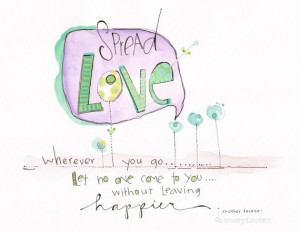 SPREAD
LOVE
wherever you go..........
Let no one come to you....
without leaving
happier.
mother teresa.